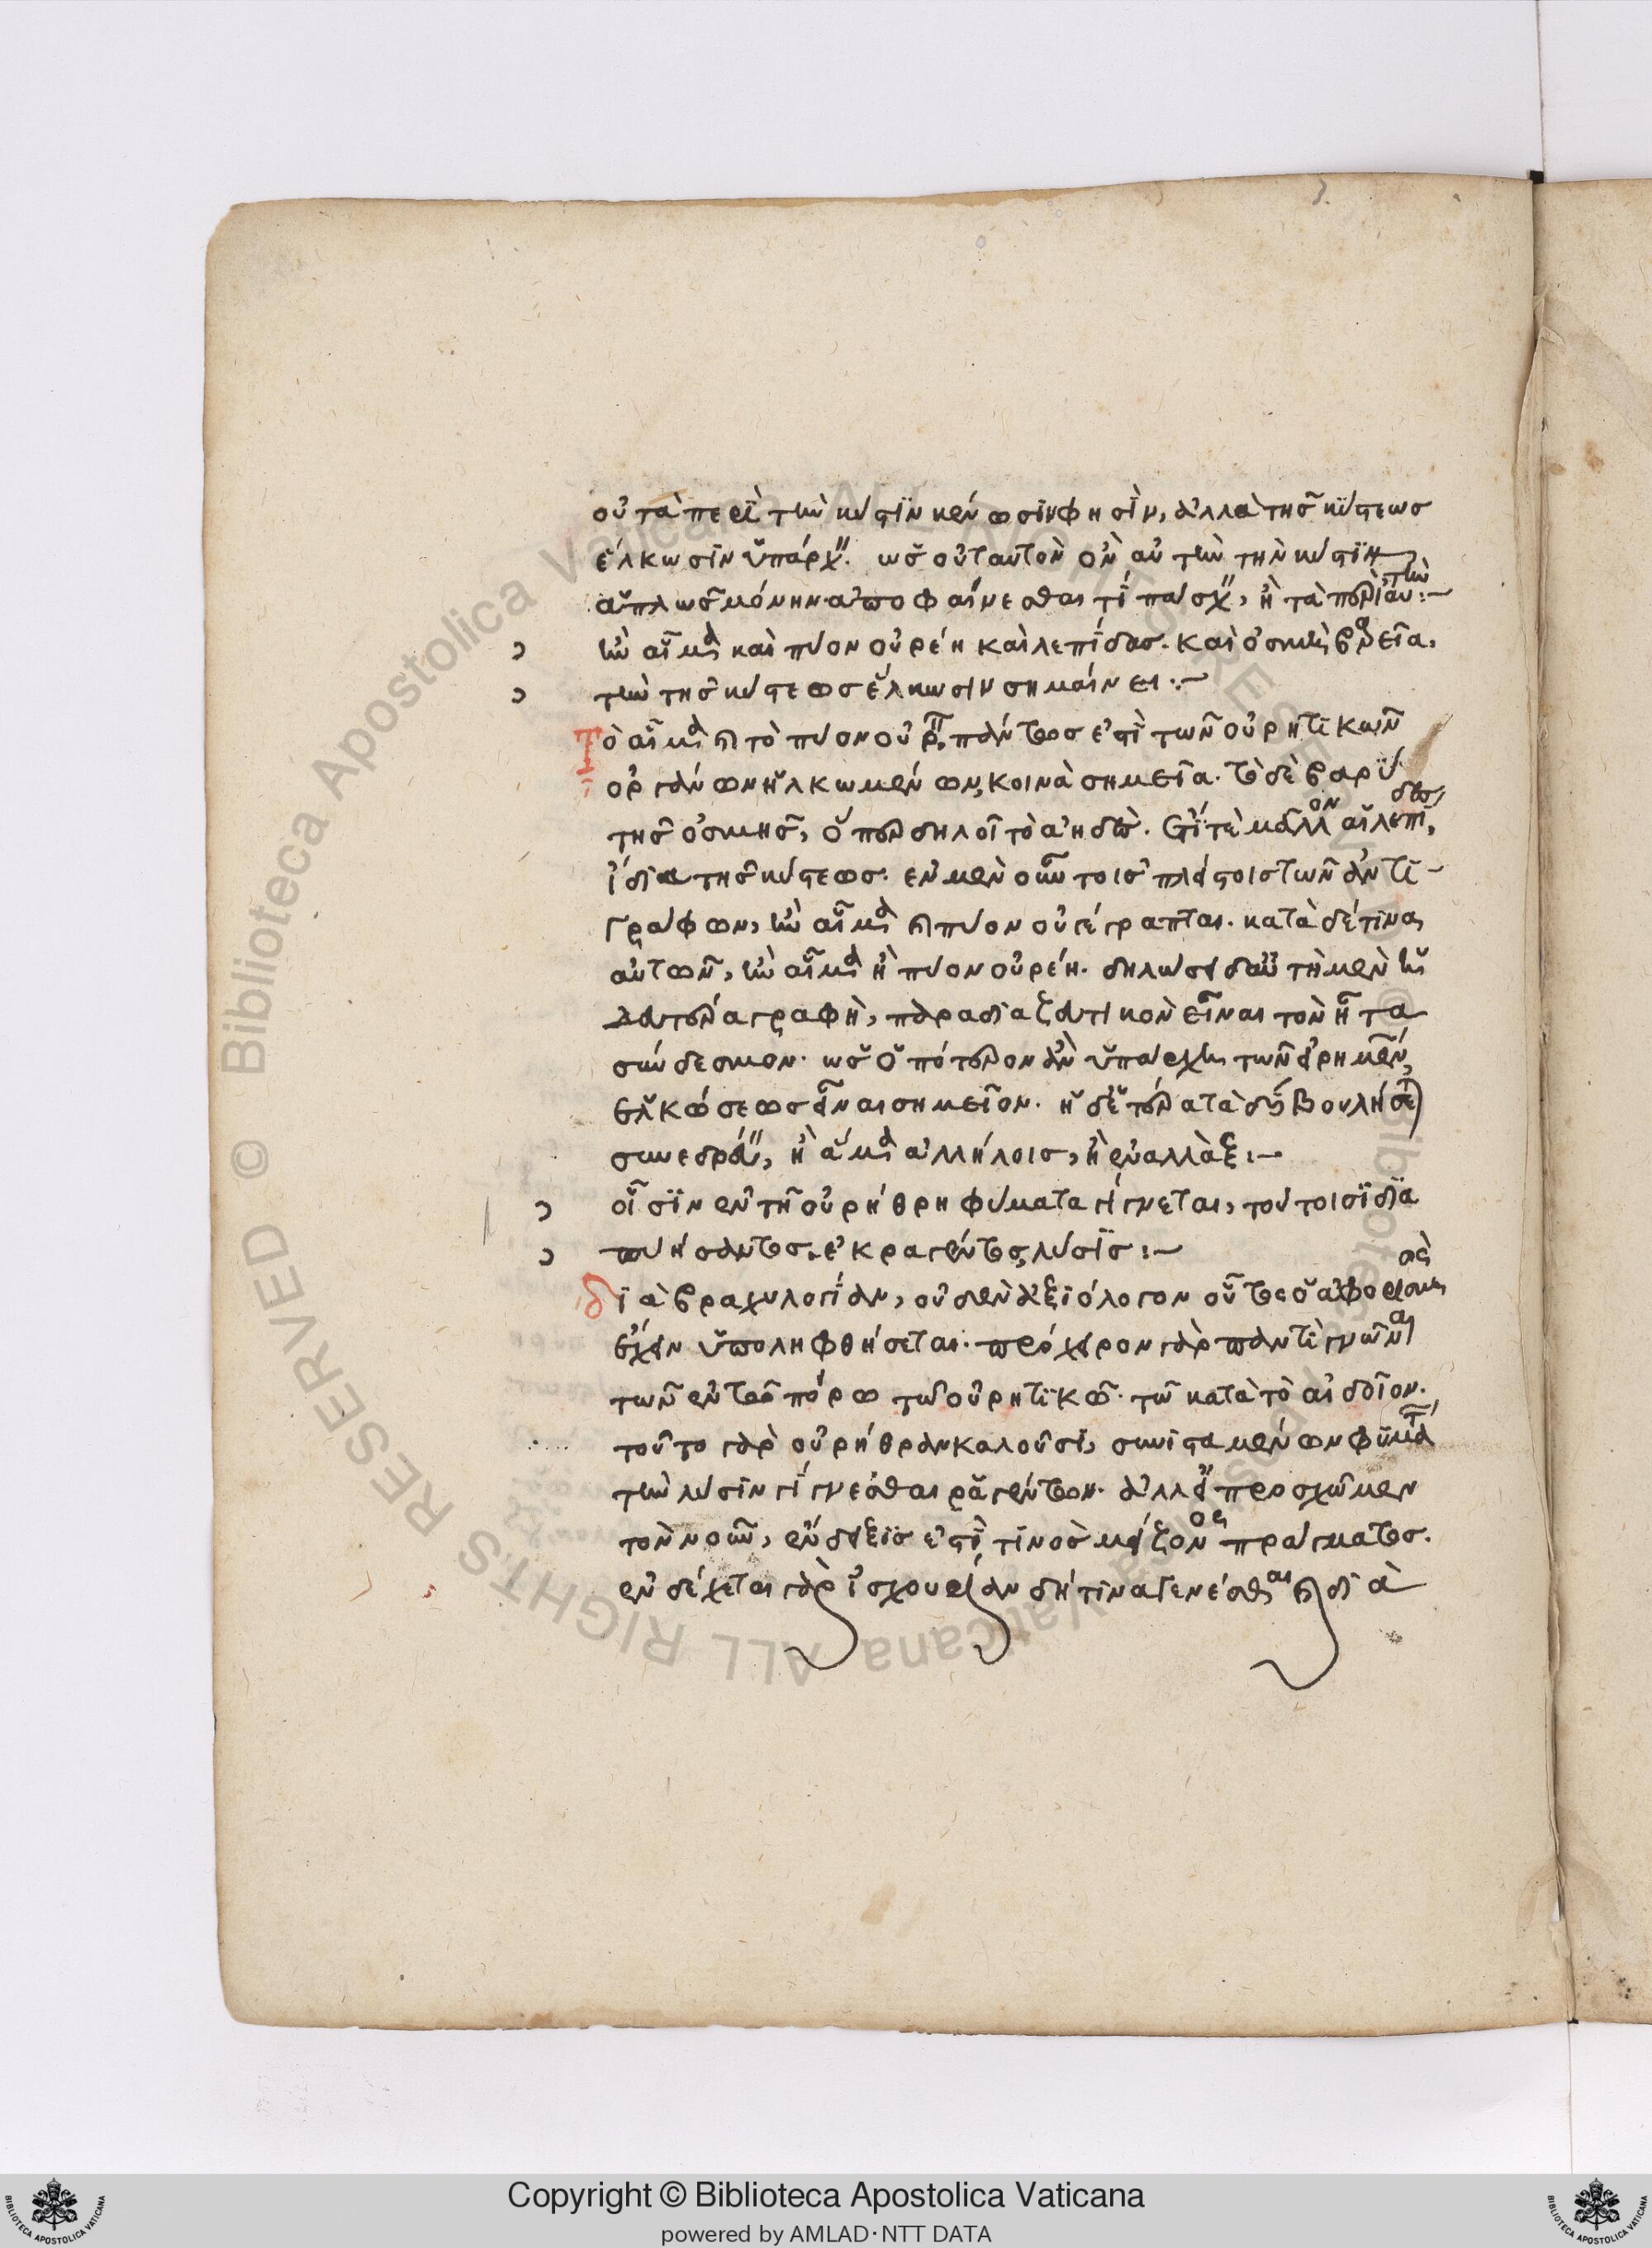 οὐ τὰ περὶ τὴν κύστιν κένωσίν φησιν, ἀλλὰ τῆς κύστεως
ἕλκωσιν ὑπάρχ. ὡς οὐ ταυτὸν ὂν αὐτὴν τὴν κύστιν
ἁπλῶς μόνην ἀποφαίνεσθαι τί πάσχ, ἢ τὰ περὶ αὐτὴν:—
ἢν αἷμα καὶ πύον οὐρέη καὶ λεπίδας. καὶ ὀσμὴ βαρεῖα,
τὴν τῆς κύστεως ἕλκωσιν σημαίνει:—
Τὸ αἷμα καὶ τὸ πύον οὐρ. πάντως ἐστὶ τῶν οὐρητικῶν
ὀργάνων ἡλκωμένων, κοινὰ σημεῖα. τὸ δὲ βαρὺ
τῆς ὀσμῆς, ὅπερ δηλοῖ τὸ ἀηδὲς. ἔτι τὲ μᾶλλον αἱ λεπίδες,
ἴδια τῆς κύστεως. ἐν μὲν οὖν τοῖς πλείστοις τῶν ἀντι-
γράφων, ἢν αἷμα καὶ πύον οὐ γέγραπται. κατὰ δέ τινα
αὐτῶν, ἢν αἷμα ἢ πύον οὐρέη. δηλώσει δ' αὖ τὴ μὲν ἡ
δευτέρα γραφὴ, παραδιαζευτικὸν εἶναι τὸν ἦτα
σύνδεσμον. ὡς ὁπότερον ἂν ὑπάρχη τῶν εἰρημένων,
ἑλκώσεως εἶναι σημεῖον. ἡ δ' ἑτέρα τὰ δύο βουλήσεται
συνεδρεύ, ἢ ἅμα ἀλλήλοις, ἢ ἐναλλάξ:—
οἷσιν ἐν τῆ οὐρήθρη φύματα γίγνεται, τούτοισι διὰ
πυήσαντος. ἐκραγέντος, λύσις:—
διὰ βραχυλογίαν, οὐδὲν ἀξιόλογον οὗτος ὁ ἀφορισμὸς
ἔχειν ὑποληφθήσεται. πρόχειρον γὰρ παντὶ γνῶναι
τῶν ἐν τῶ πόρω τῶ οὐρητικῶ. τῶ κατὰ τὸ αἰδοῖον.
τοῦτο γὰρ οὐρήθραν καλοῦσι, συνισταμένων φυμάτων
τὴν λύσιν γίγνεσθαι ῥαγέντων. ἀλλ' εἰ προσχῶμεν
τὸν νοῦν, ἔνδειξις ἐστὶ τινὸς μείζονος πράγματος.
ἐνδέχεται γὰρ ἰσχουρίαν δή τινα γενέσθαι καὶ διὰ